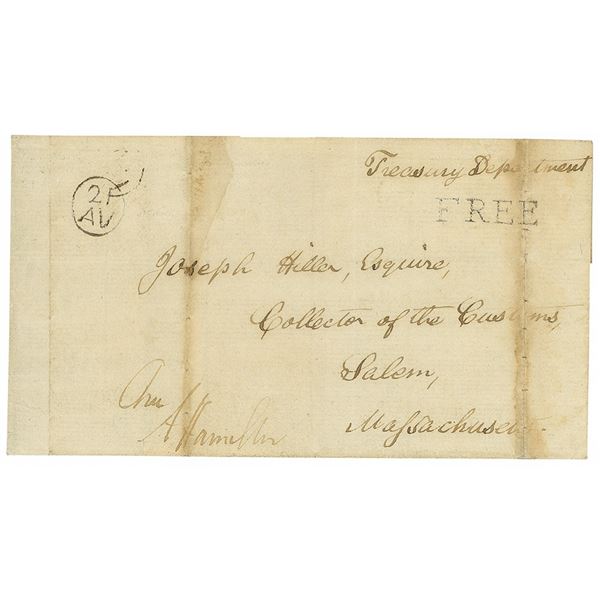 Treasury Department
FREE
AU
Joseph Hiller, Esquire,
Collector of the Customs,
Salem,
Massachusetts.
A Hamilton